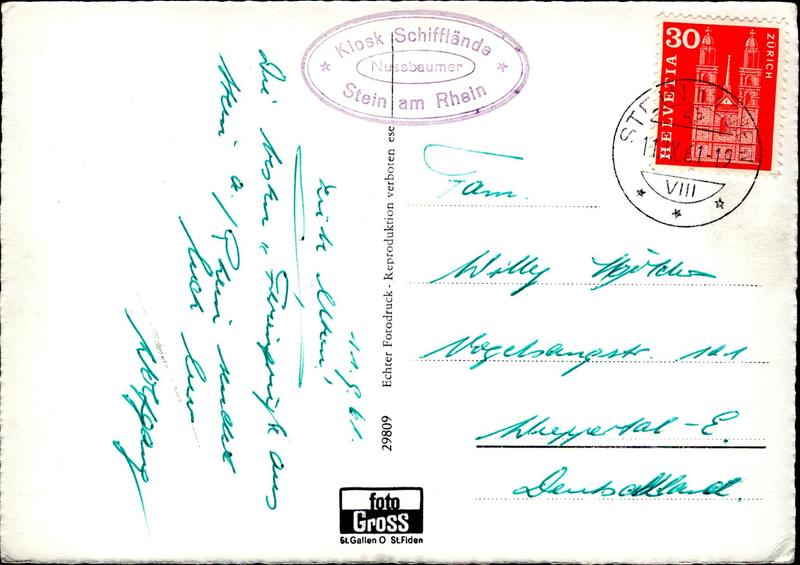 Kiosk Schifflände
Nussbaumer
Stein am Rhein
30
HELVETIA
ZÜRICH
VIII
11.9.61.
Liebe Eltern!
Die besten Feriengrüße aus
Stein a./Rhein sendet
Euch Euer
Wolfgang
Echter Fotodruck - Reproduktion verboten ese
29809
Fam.
Willy
Vogelsangstr. 121
Wuppertal-E.
Deutschland.
foto
Gross
St.Gallen O St.Fiden